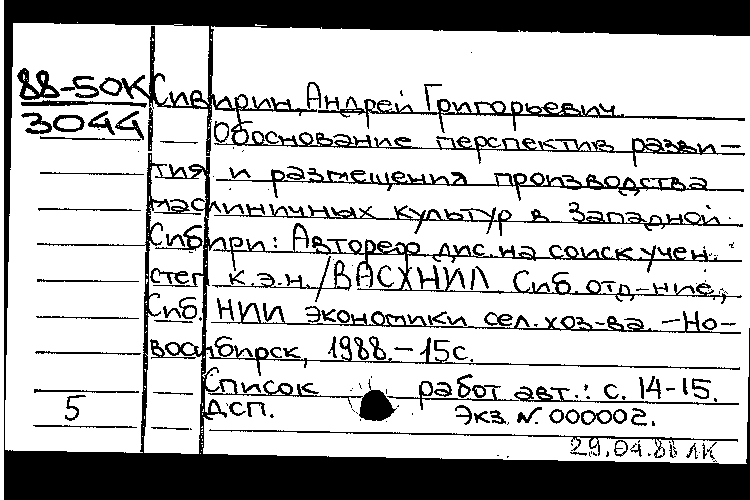 88-50К
3044
Сивирин, Андрей Григорьевич.
Обоснование перспектив разви-
тия и размещения производства
масличных культур в Западной
Сибири: Автореф дис. на соиск. учен.
степ к.э.н. /ВАСХНИЛ Сиб. отд-ние,
Сиб. НИИ экономики сел. хоз-ва. -Но-
восибирск, 1988. - 15с.
Список работ авт.: с. 14-15.
5
ДСП. Экз. N. 000002.
29.04.88 ЛК